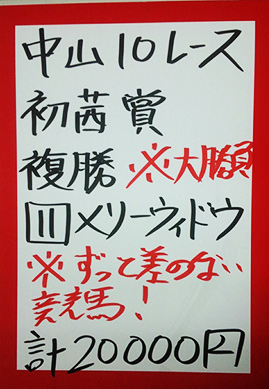 中山10レース
初茜賞
複勝 ※大勝負
11メリーウィドウ
※ずっと差のない
競馬!
計20000円